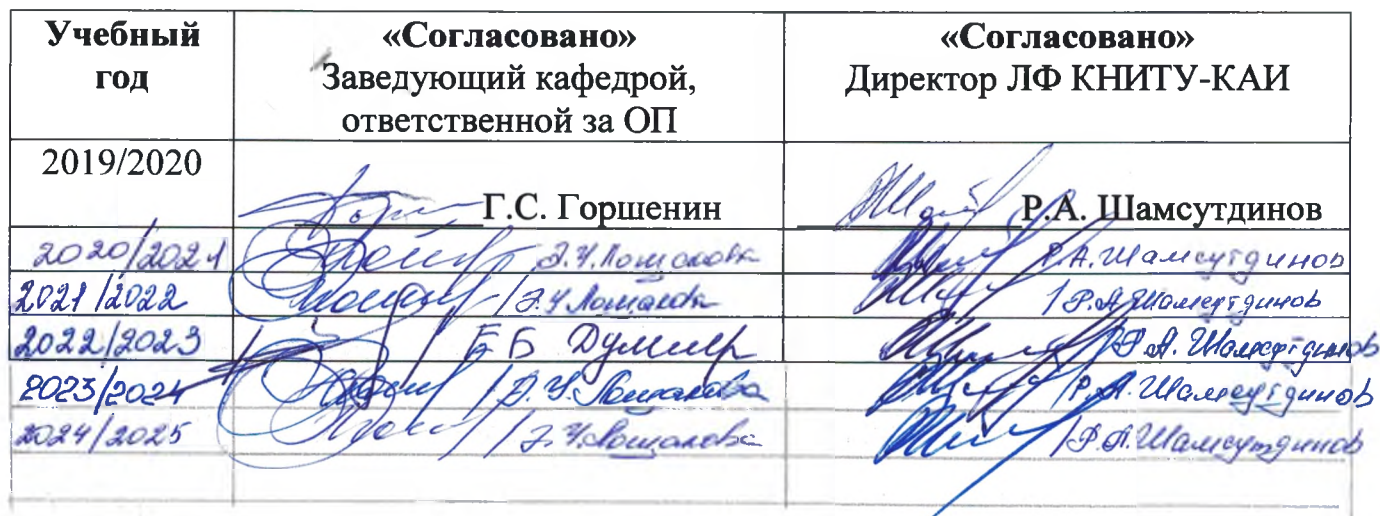 Учебный год
«Согласовано» Заведующий кафедрой, ответственной за ОП
«Согласовано» Директор ЛФ КНИТУ-КАИ
2019/2020 Г.С. Горшенин Р.А. Шамсутдинов
2020/2021 Р.А. Шамсутдинов
2021/2022 / /Р.А. Шамсутдинов
2022/2023 / Р.А. Шамсутдинов
2023/2024 / /Р.А. Шамсутдинов
2024/2025 / /Р.А. Шамсутдинов